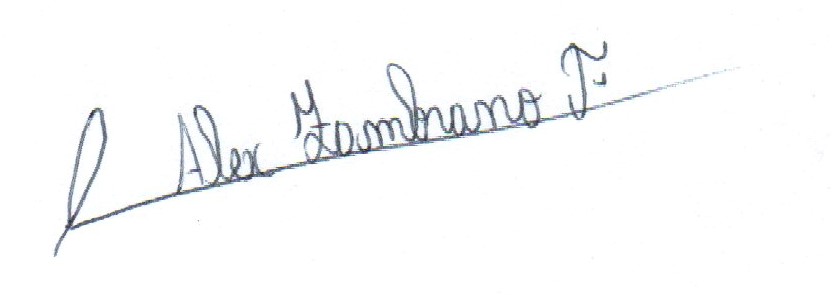 Alex Zambrano F.